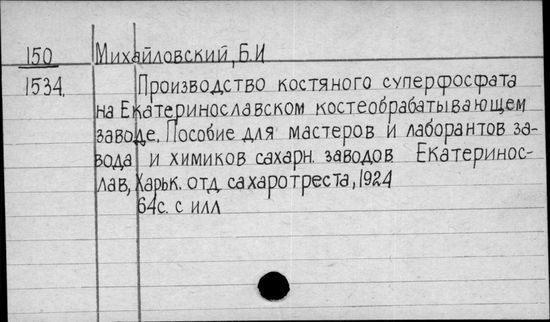 150 Михайловский, Б.И
1534. Производство костяного суперфосфата
на Екатеринославском костеобрабатывающем
заводе. Пособие для мастеров и лаборантов за-
вода и химиков сахарн. заводов Екатеринос-
лав, Харьк. отд. сахаротреста, 1924
64с. с илл